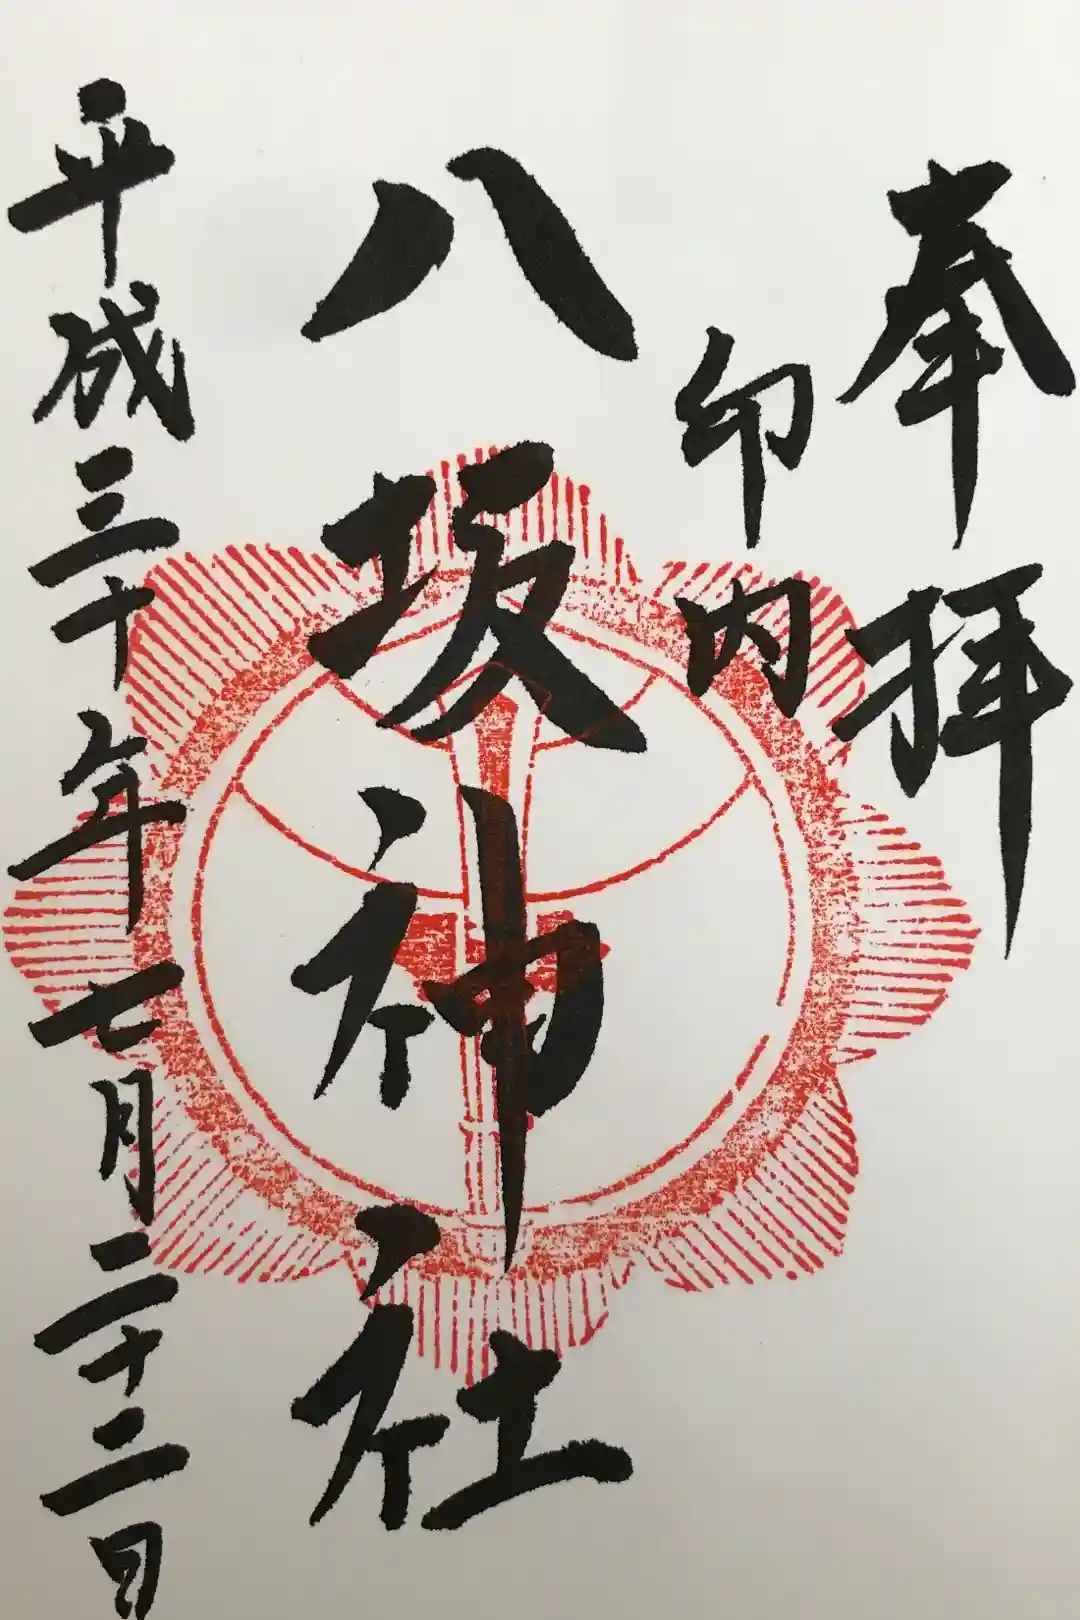 奉拝
印内
八坂神社
平成三十年七月二十二日